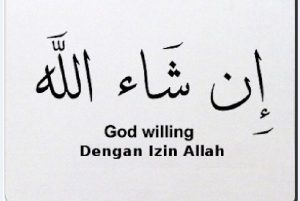 إِن شَاء اللَّه
God willing
Dengan Izin Allah